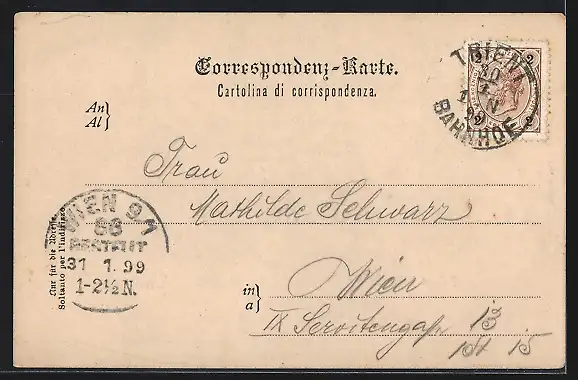 Correspondenz-Karte.
Cartolina di corrispondenza.
2 2
2 2
TRIENT
BAHNHOF
An
Al
Frau
Mathilde Schwarz
in
a
Wien
IX Servitengasse
15
WIEN 9/1
BESTELLT
31 1 99
1-2½N.
Nur für die Adresse.
Soltanto per l'indirizzo